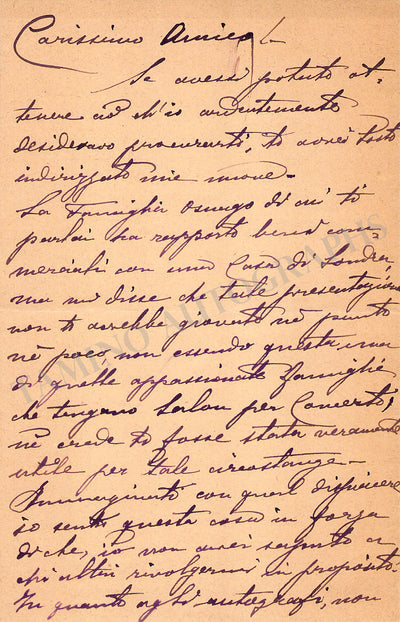 Carissimo Amico
Se avessi potuto ot-
tenere ciò ch'io ardentemente
desideravo procurarti, ti avrei tosto
indirizzato mie nuove.
La Famiglia Osnago di cui ti
parlai ha rapporto bensì com-
merciali con una Casa di Londra,
ma mi disse che tale presentazione
non ti avrebbe giovato nè punto
nè poco, non essendo questa una
di quelle appassionate famiglie
che tengano Salon per Concerti,
nè crede ti fosse stata veramente
utile per tale circostanza.
Immaginati con qual dispiacere
io sento questa cosa in forza
di che, io non avrei saputo a
chi altri rivolgermi in proposito.
In quanto agli autografi, non
TAMINO AUTOGRAPHS